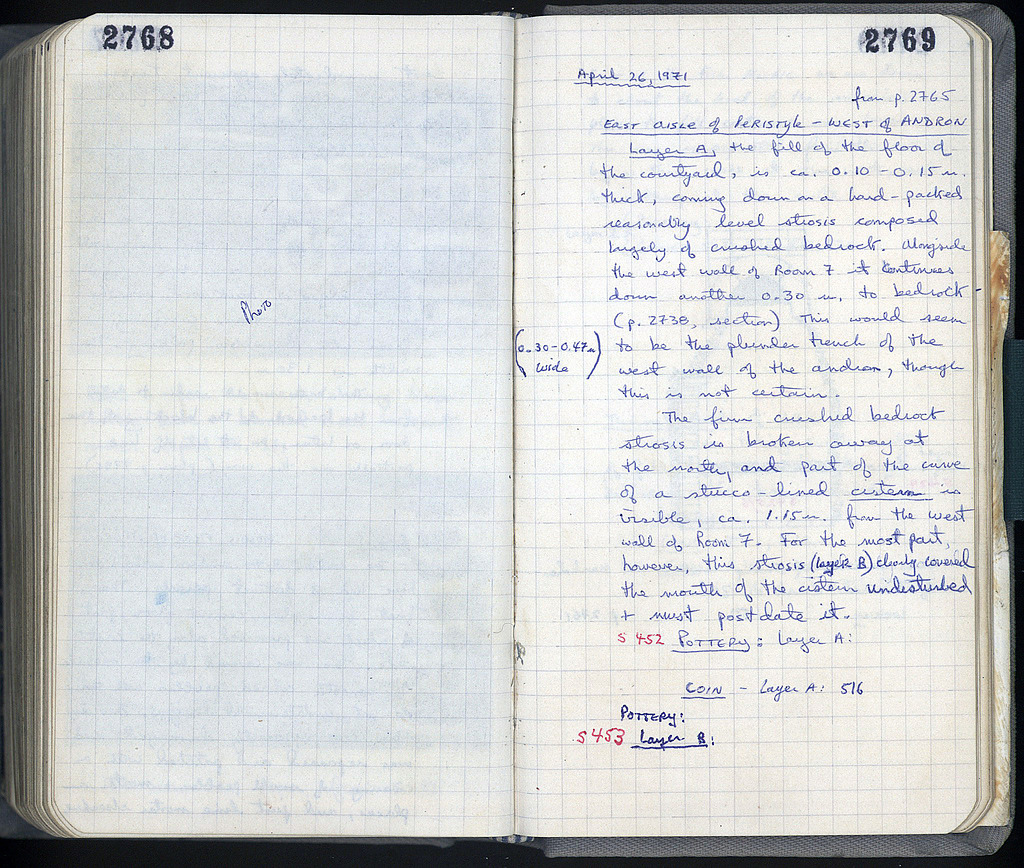 2768
Photo
2769
April 26, 1971
from p. 2765
EAST AISLE of PERISTYLE - WEST of ANDRON
Layer A, the fill of the floor of
the courtyard, is ca. 0.10 - 0.15 m.
thick, coming down on a hard-packed
reasonably level strosis composed
largely of crushed bedrock. Alongside
the west wall of Room 7 it continues
down another 0.30 m. to bedrock -
(p. 2738, section) This would seem
(0.30-0.47 m
wide)
to be the plunder trench of the
west wall of the andron, though
this is not certain.
The firm crushed bedrock
strosis is broken away at
the north, and part of the curve
of a stucco-lined cistern is
visible, ca. 1.15 m. from the west
wall of Room 7. For the most part,
however, this strosis (layer B) clearly covered
the mouth of the cistern undisturbed
+ must postdate it.
S 452 POTTERY: Layer A:
COIN - Layer A: 516
POTTERY:
S 453 Layer B: